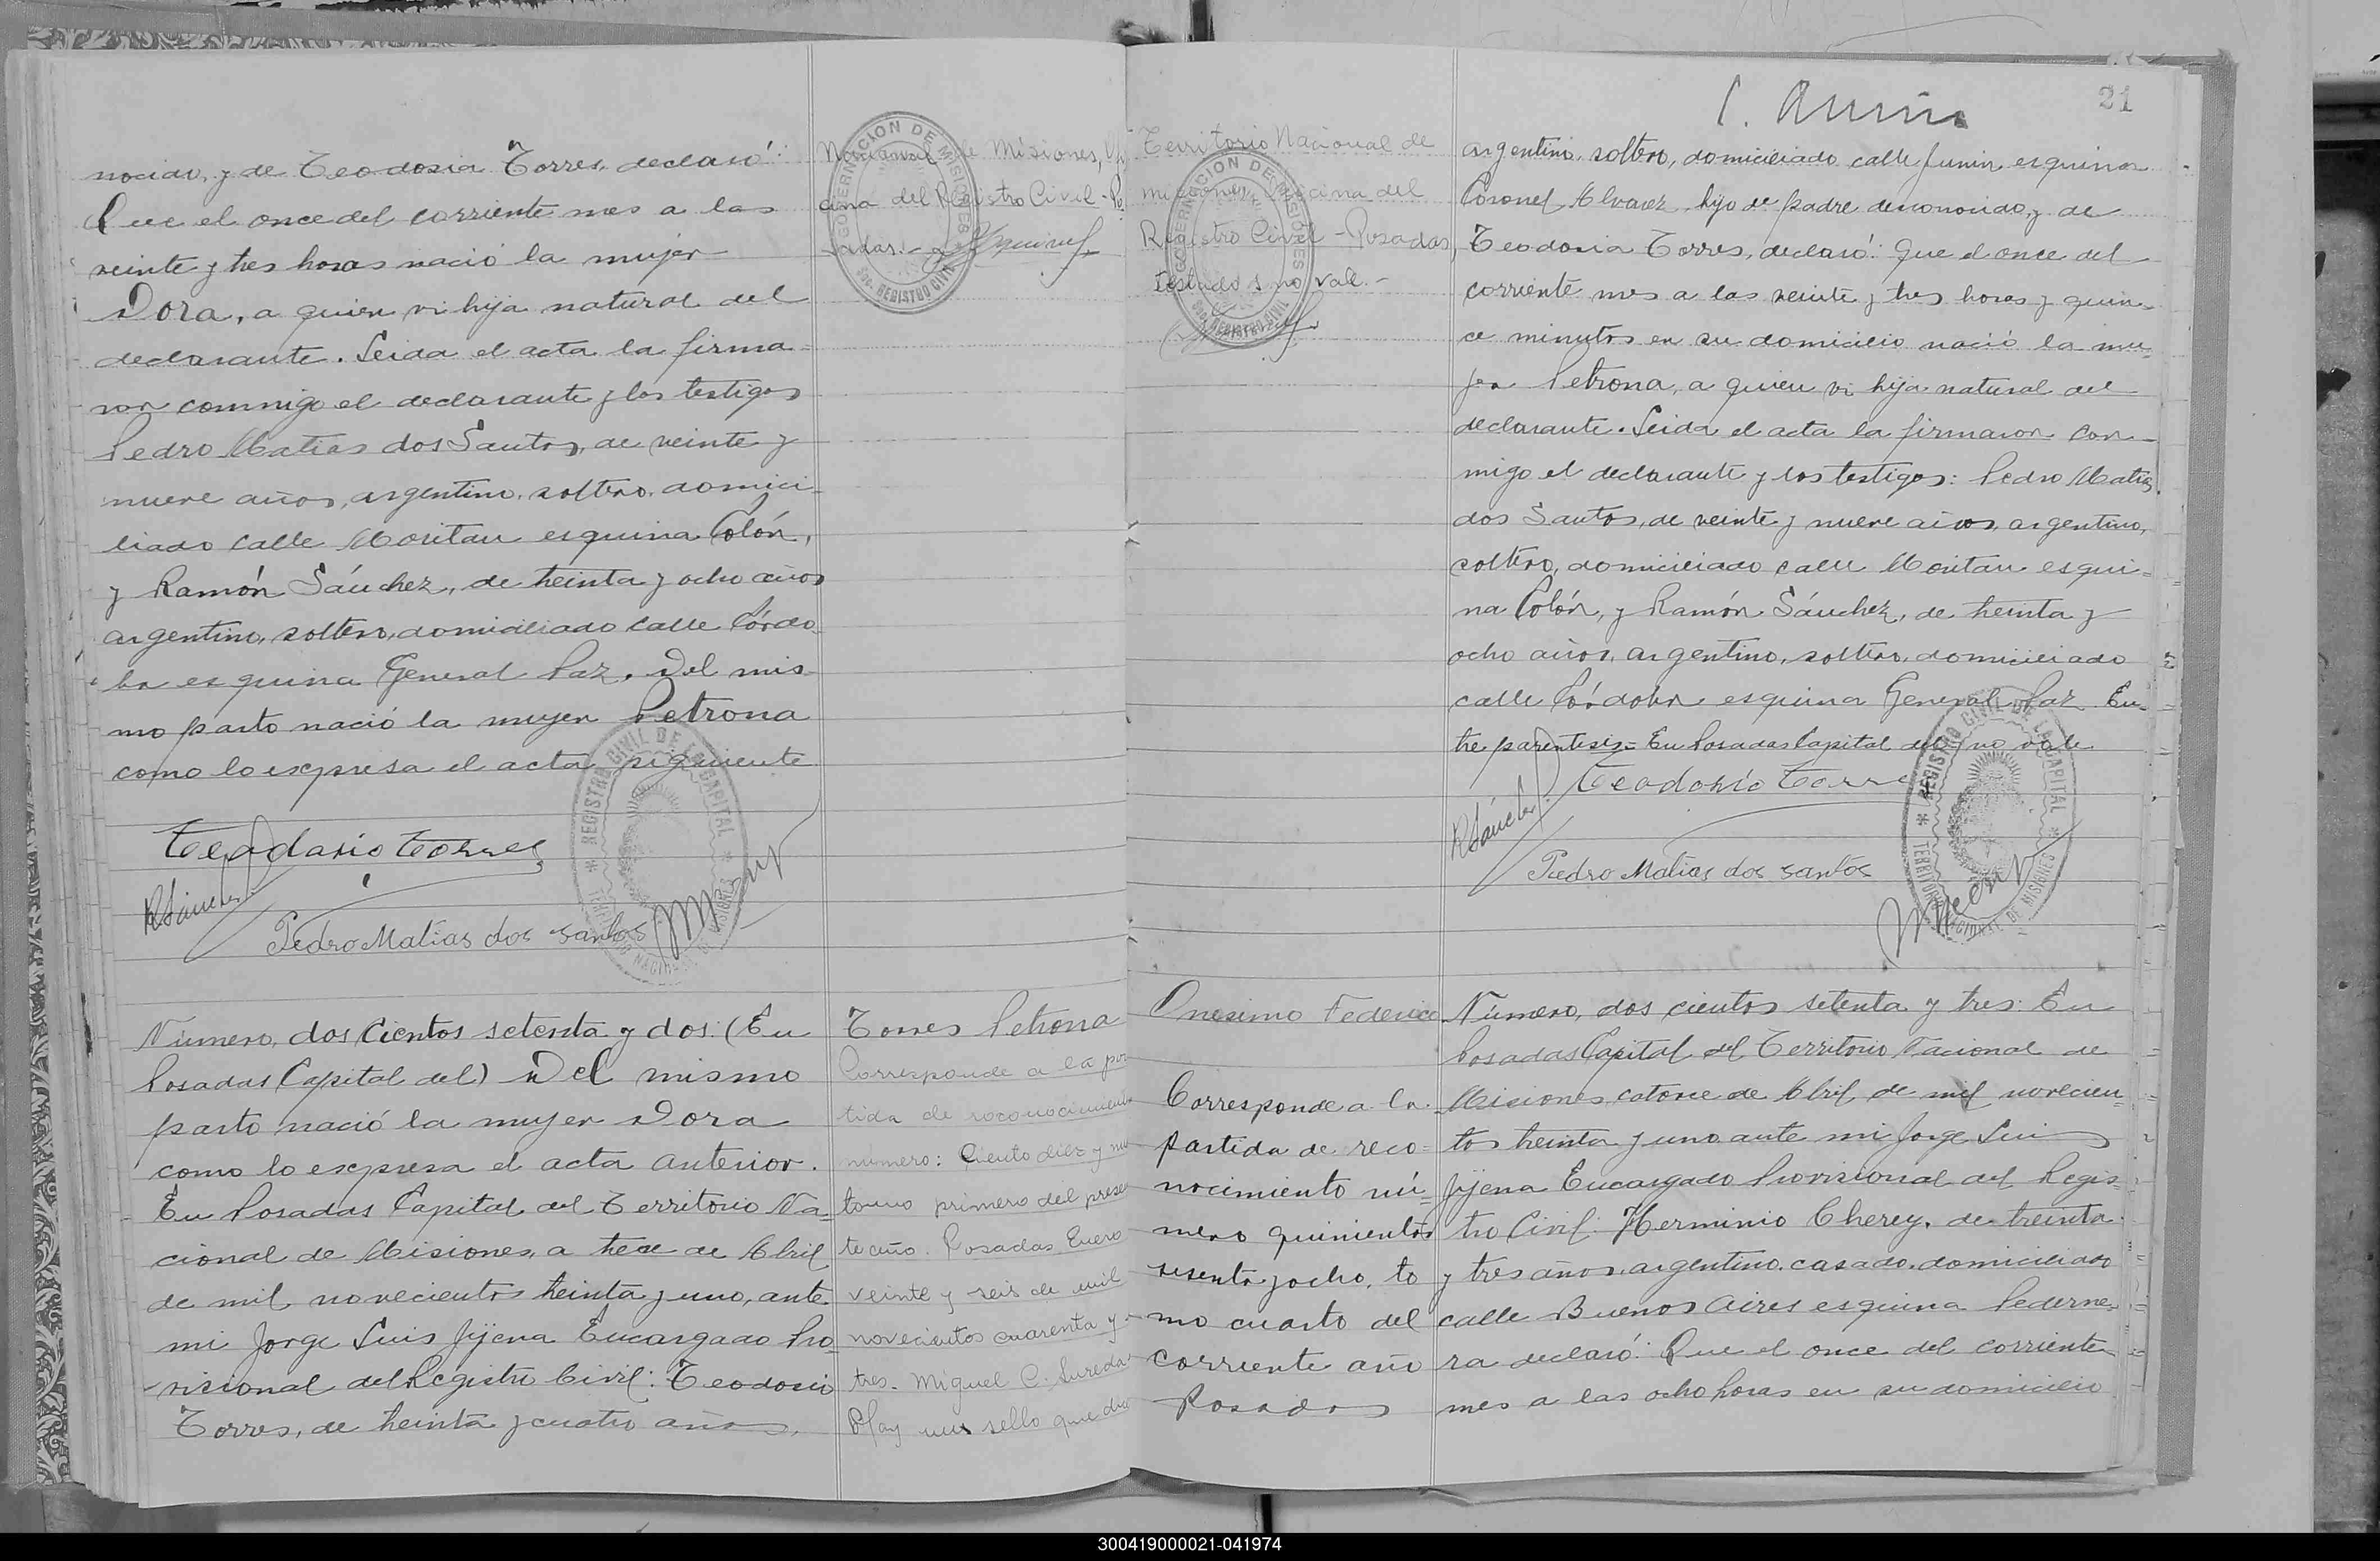 nocido, y de Teodosia Torres, declaró:
Que el once del corriente mes a las
veinte y tres horas nació la mujer
Dora, a quien vi hija natural del
declarante. Leida el acta la firma-
ron conmigo el declarante y los testigos
Pedro Matias dos Santos, de veinte y
nueve años, argentino, soltero, domici-
liado calle Moritan esquina Colón,
y Ramón Sánchez, de treinta y ocho años
argentino, soltero, domiciliado calle Córdo-
ba esquina General Paz. Del mis-
mo parto nació la mujer Petrona
como lo expresa el acta siguiente
Teodosio Torres
RSánchez
Pedro Matias dos Santos
REGISTRO CIVIL DE LA CAPITAL
TERRITORIO NACIONAL DE MISIONES
Nacional de Misiones, Ofi
cina del Registro Civil - Po
sadas. -
GOBERNACION DE MISIONES
REGISTRO CIVIL
Número, dos cientos setenta y dos: (En
Posadas Capital del) Del mismo
parto nació la mujer Dora
como lo expresa el acta anterior.
En Posadas Capital del Territorio Na-
cional de Misiones, a trece de Abril
de mil novecientos treinta y uno, ante
mi Jorge Luis Jijena Encargado Pro
visional del Registro Civil: Teodosio
Torres, de treinta y cuatro años,
Torres Petrona
Corresponde a la par
tida de reconocimiento
número: Ciento diez y nue
tomo primero del presen
te año. Posadas Enero
veinte y seis de mil
novecientos cuarenta y
tres. Miguel C. Sureda
Hay un sello que dice
21
Territorio Nacional de
Misiones, Oficina del
Registro Civil - Posadas,
testado s no vale. -
GOBERNACION DE MISIONES
REGISTRO CIVIL
argentino, soltero, domiciliado calle Junin esquina
Coronel Alvarez, hijo de padre desconocido, y de
Teodosia Torres, declaró: Que el once del
corriente mes a las veinte y tres horas y quin-
ce minutos en su domicilio nació la mu-
jer Petrona, a quien vi hija natural del
declarante. Leida el acta la firmaron con-
migo el declarante y los testigos: Pedro Matias
dos Santos, de veinte y nueve años, argentino,
soltero, domiciliado calle Moritan esqui-
na Colón, y Ramón Sánchez, de treinta y
ocho años, argentino, soltero, domiciliado
calle Córdoba esquina General Paz. En-
tre parentesis = En Posadas Capital del = no vale.
Teodosio Torres
RSánchez
Pedro Matias dos Santos
REGISTRO CIVIL DE LA CAPITAL
TERRITORIO NACIONAL DE MISIONES
Onesimo Federico
Corresponde a la
partida de reco-
nocimiento nú-
mero quinientos
sesenta y ocho, to
mo cuarto del
corriente año
Posadas
Número, dos cientos setenta y tres: En
Posadas Capital del Territorio Nacional de
Misiones catorce de Abril de mil novecien-
tos treinta y uno ante mi Jorge Luis
Jijena Encargado Provisional del Regis-
tro Civil: Herminio Cherey, de treinta
y tres años, argentino, casado, domiciliado
calle Buenos Aires esquina Pederne-
ra declaró: Que el once del corriente
mes a las ocho horas en su domicilio
300419000021-041974